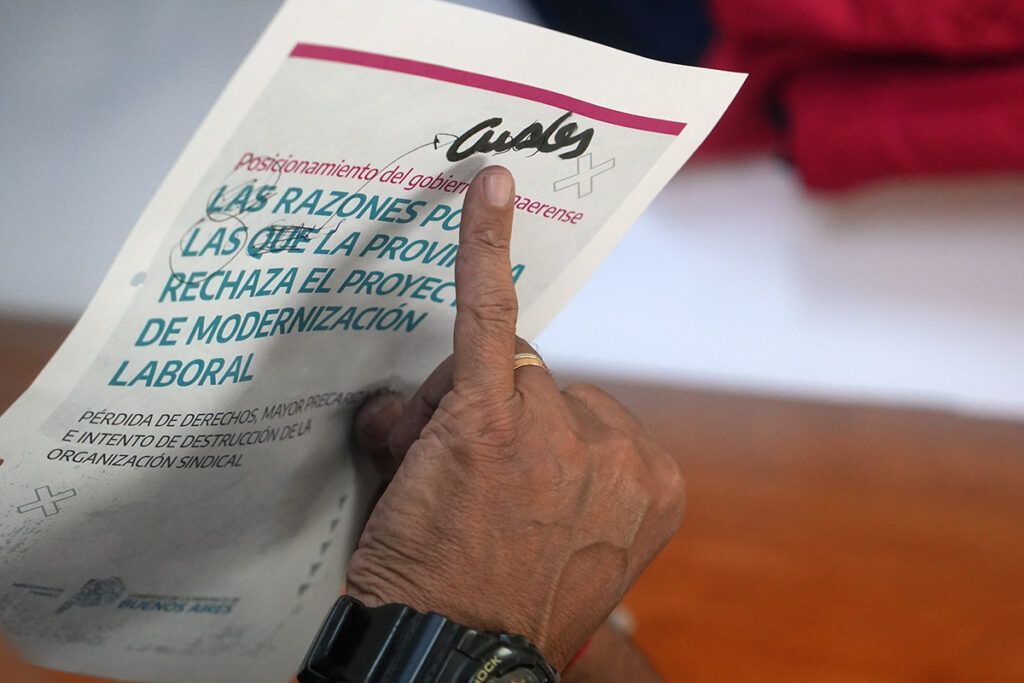 Cuales
Posicionamiento del gobierno bonaerense
LAS RAZONES POR
LAS QUE LA PROVINCIA
RECHAZA EL PROYECTO
DE MODERNIZACIÓN
LABORAL
PÉRDIDA DE DERECHOS, MAYOR
E INTENTO DE DESTRUCCIÓN DE LA
ORGANIZACIÓN SINDICAL
MINISTERIO DE
TRABAJO
BUENOS AIRES